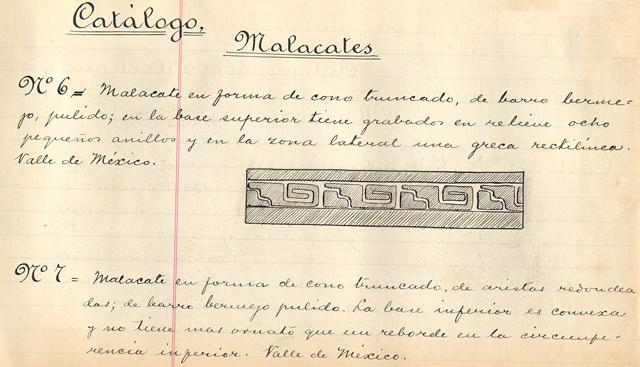 Catálogo.
Malacates
Nº 6 = Malacate en forma de cono truncado, de barro berme-
jo, pulido; en la base superior tiene grabados en relieve ocho
pequeños anillos y en la zona lateral una greca rectilínea.
Valle de México.
Nº 7 = Malacate en forma de cono truncado, de aristas redondea
das; de barro bermejo pulido. La base inferior es convexa
y no tiene mas ornato que un reborde en la circunfe-
rencia inferior. Valle de México.